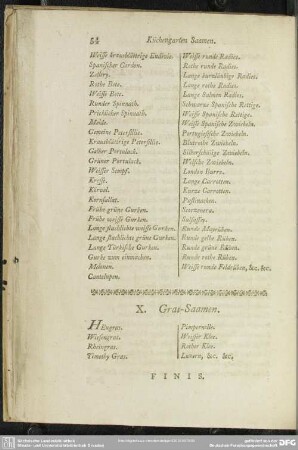 54 Küchengarten Saamen.
Weisse krausblättrige Endivie.
Spanischer Cardon.
Zellery.
Rothe Bete.
Weisse Bete.
Runder Spinnath.
Pricklicher Spinnath.
Melde.
Gemeine Petersillie.
Krausblättrige Petersillie.
Gelber Portulack.
Grüner Portulack.
Weisser Senpf.
Kresse.
Körvel.
Kornsallat.
Frühe grüne Gurken.
Frühe weisse Gurken.
Lange stachlichte weisse Gurken.
Lange stachlichte grüne Gurken.
Lange Türkische Gurken.
Gurke zum einmachen.
Melonen.
Cantelupen.
Weisse runde Radies.
Rothe runde Radies.
Lange kurzläubige Radies.
Lange rothe Radies.
Lange Salmon Radies.
Schwarze Spanische Rettige.
Weisse Spanische Rettige.
Weisse Spanische Zwiebeln.
Portugiesische Zwiebeln.
Blutrothe Zwiebeln.
Silberschälige Zwiebeln.
Welsche Zwiebeln.
London Burré.
Lange Carrotten.
Kurze Carrotten.
Pastinacken.
Scorzonera.
Salsafien.
Runde Mayrüben.
Runde gelbe Rüben.
Runde grosse Rüben.
Runde rothe Rüben.
Weisse runde Feldrüben, &c. &c.
X. Gras-Saamen.
Heugras.
Wiesengras.
Rheingras.
Timothy Gras.
Pimpernelle.
Weisser Klee.
Rother Klee.
Lucern, &c. &c.
FINIS.